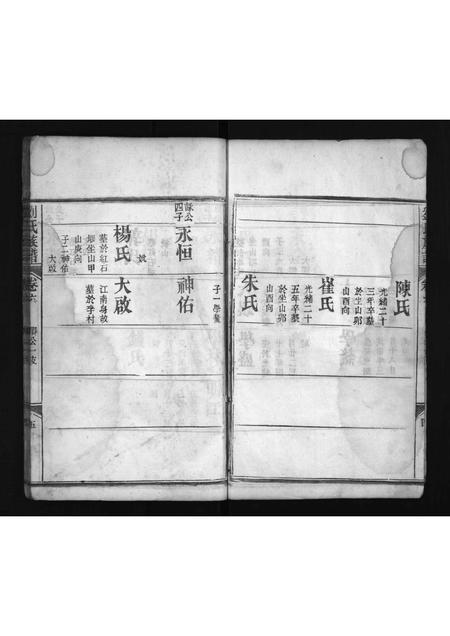 陳氏
光緒二十
三年卒墓
於坐山郭
山酉向
崔氏
光緒二十
五年卒墓
於坐山郭
山酉向
朱氏
子一學
詠公
四子
永恒
神佑
楊氏
墓於紅石
坐山甲
山庚向
子二神佑
大啟
大啟
江南身故
墓於李村
劉氏族譜
卷六
五
四